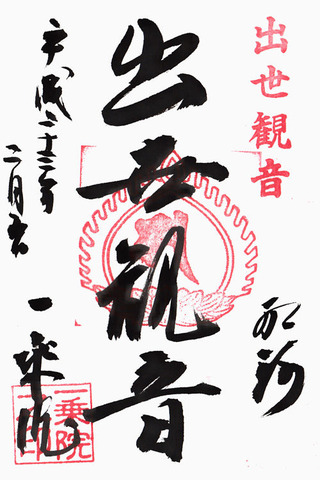 出世観音
奉拝
出世観音
平成二十三年
二月吉日
一乗院
一乗院印